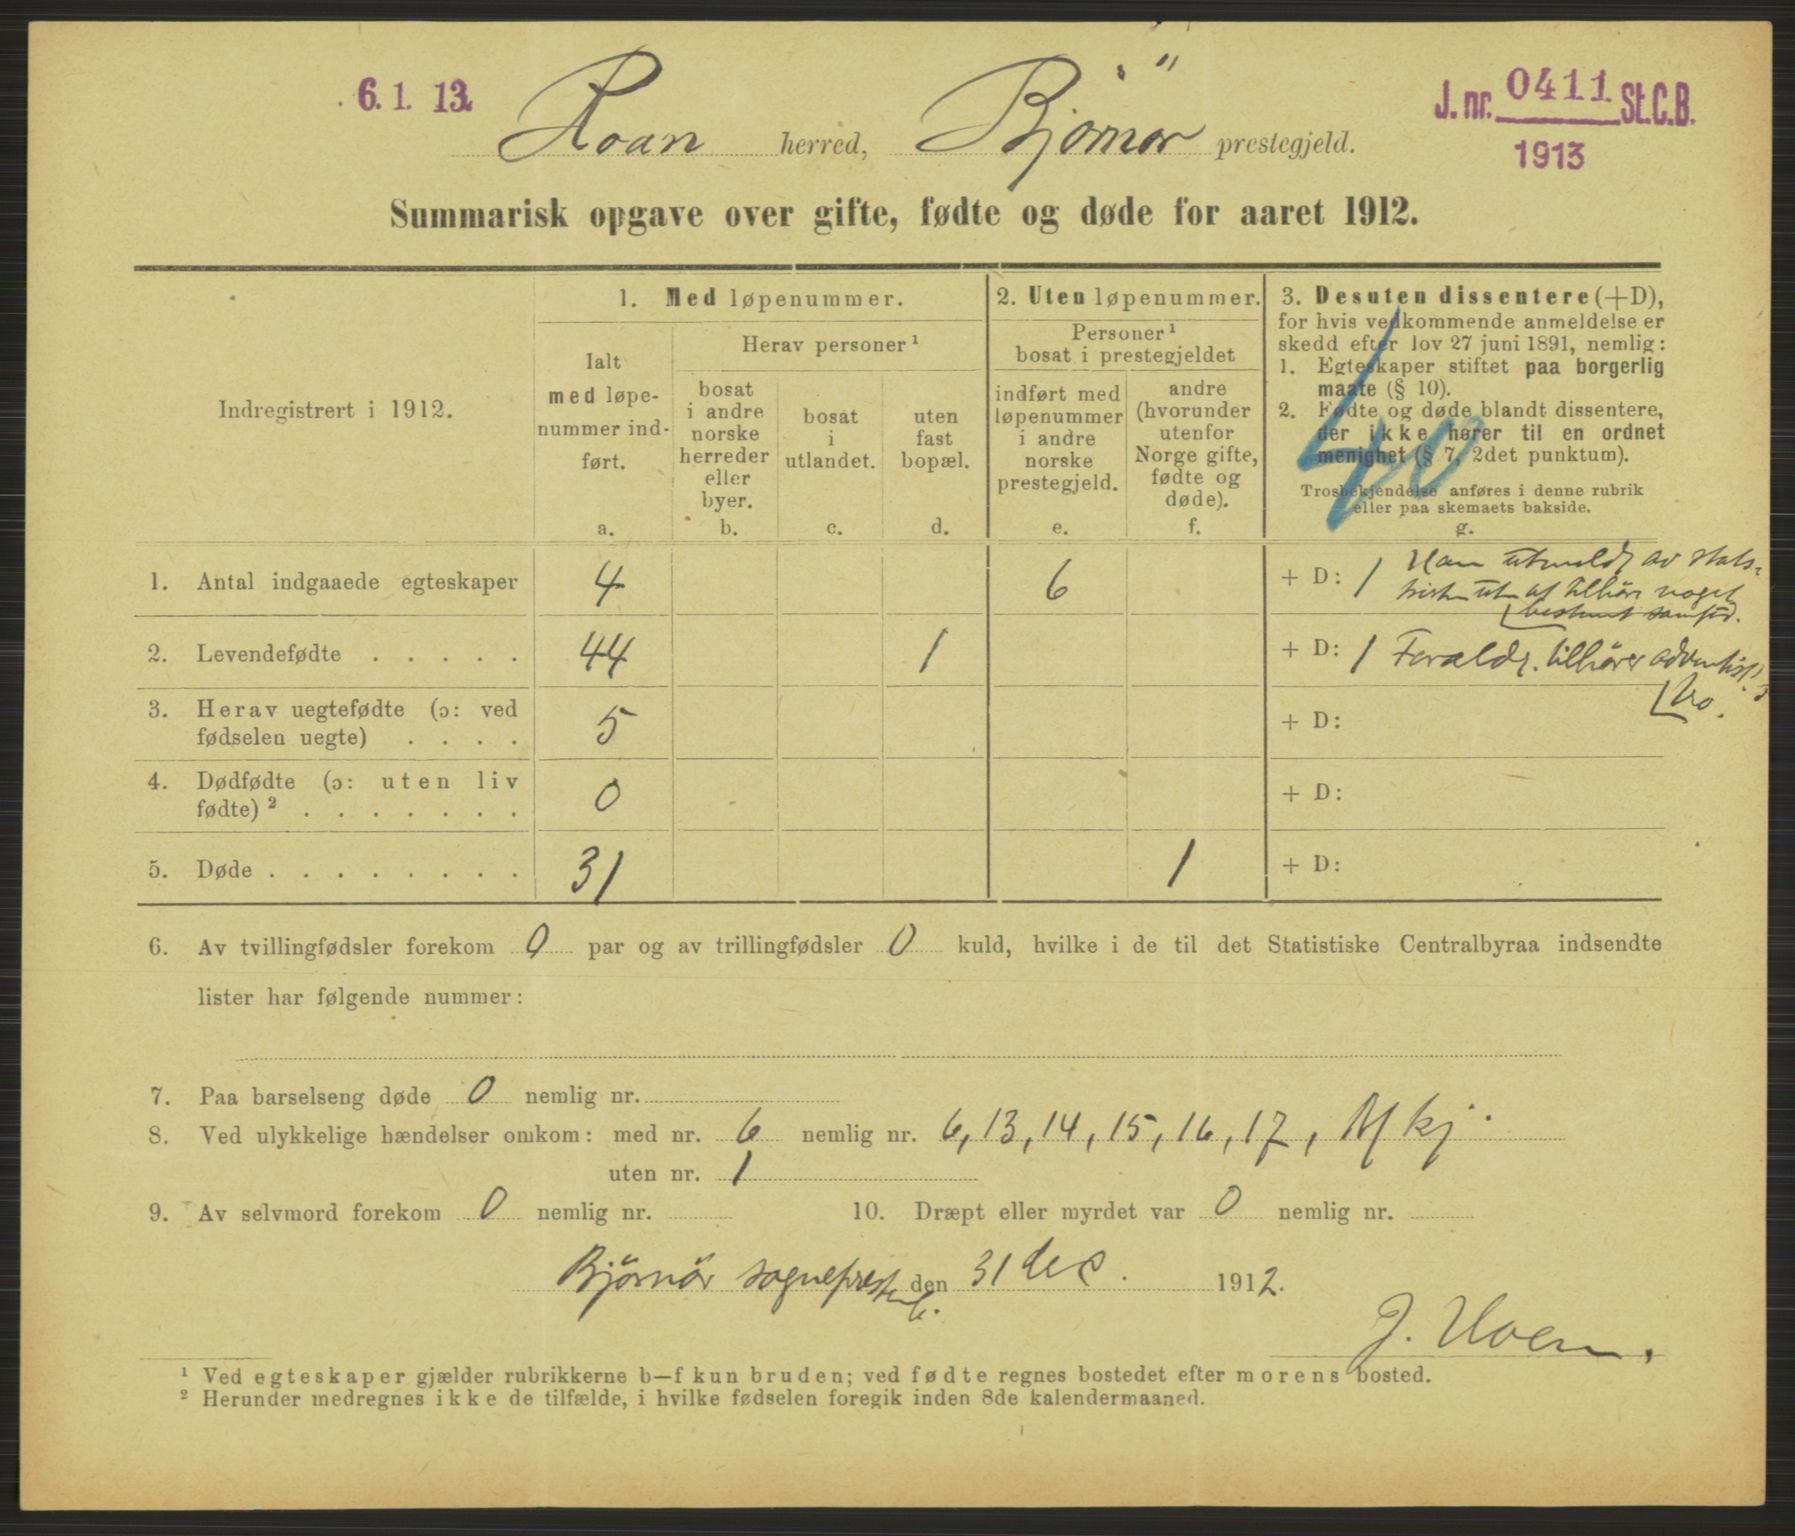 6. 1. 13.
J. nr. 0411 St.C.B.
1913
Roan herred, Bjørnør prestegjeld.
Summarisk opgave over gifte, fødte og døde for aaret 1912.
Indregistrert i 1912.
1. Med løpenummer.
Ialt
med løpe-
nummer ind-
ført.
a.
Herav personer ¹
bosat
i andre
norske
herreder
eller
byer.
b.
bosat
i
utlandet.
c.
uten
fast
bopæl.
d.
2. Uten løpenummer.
Personer ¹
bosat i prestegjeldet
indført med
løpenummer
i andre
norske
prestegjeld.
e.
andre
(hvorunder
utenfor
Norge gifte,
fødte og
døde).
f.
3. Desuten dissentere (+D),
for hvis vedkommende anmeldelse er
skedd efter lov 27 juni 1891, nemlig:
1. Egteskaper stiftet paa borgerlig
maate (§ 10).
2. Fødte og døde blandt dissentere,
der ikke hører til en ordnet
menighet (§ 7, 2det punktum).
Trosbekjendelse anføres i denne rubrik
eller paa skemaets bakside.
g.
40
1. Antal indgaaede egteskaper 4 6 + D: 1 Ham utmeldt av stats-
kirken uten at tilhøre noget
bestemt samfd.
2. Levendefødte . . . . . 44 1 + D: 1 Foreldr. tilhører adventist
tro.
3. Herav uegtefødte (ɔ: ved
fødselen uegte) . . . . 5 + D:
4. Dødfødte (ɔ: uten liv
fødte) ² . . . . . . . 0 + D:
5. Døde . . . . . . . . 31 1 + D:
6. Av tvillingfødsler forekom 0 par og av trillingfødsler 0 kuld, hvilke i de til det Statistiske Centralbyraa indsendte
lister har følgende nummer:
7. Paa barselseng døde 0 nemlig nr.
8. Ved ulykkelige hændelser omkom: med nr. 6 nemlig nr. 6, 13, 14, 15, 16, 17, M kj.
uten nr. 1
9. Av selvmord forekom 0 nemlig nr.
10. Dræpt eller myrdet var 0 nemlig nr.
Bjørnør sogneprestemb. den 31 dec. 1912.
J. Hoem.
¹ Ved egteskaper gjælder rubrikkerne b—f kun bruden; ved fødte regnes bostedet efter morens bosted.
² Herunder medregnes ikke de tilfælde, i hvilke fødselen foregik inden 8de kalendermaaned.